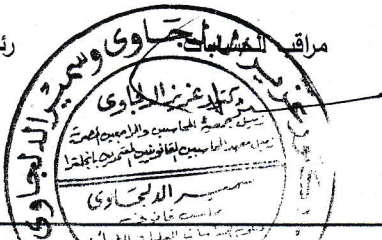 مراقب الحسابات
عزيز الدلجاوى وسمير الدلجاوى
دكتور عزيز الدلجاوى
زميل جمعية المحاسبين والمراجعين المصرية
زميل معهد المحاسبين القانونيين المعتمدين بانجلترا
سمير الدلجاوى
محاسب قانونى